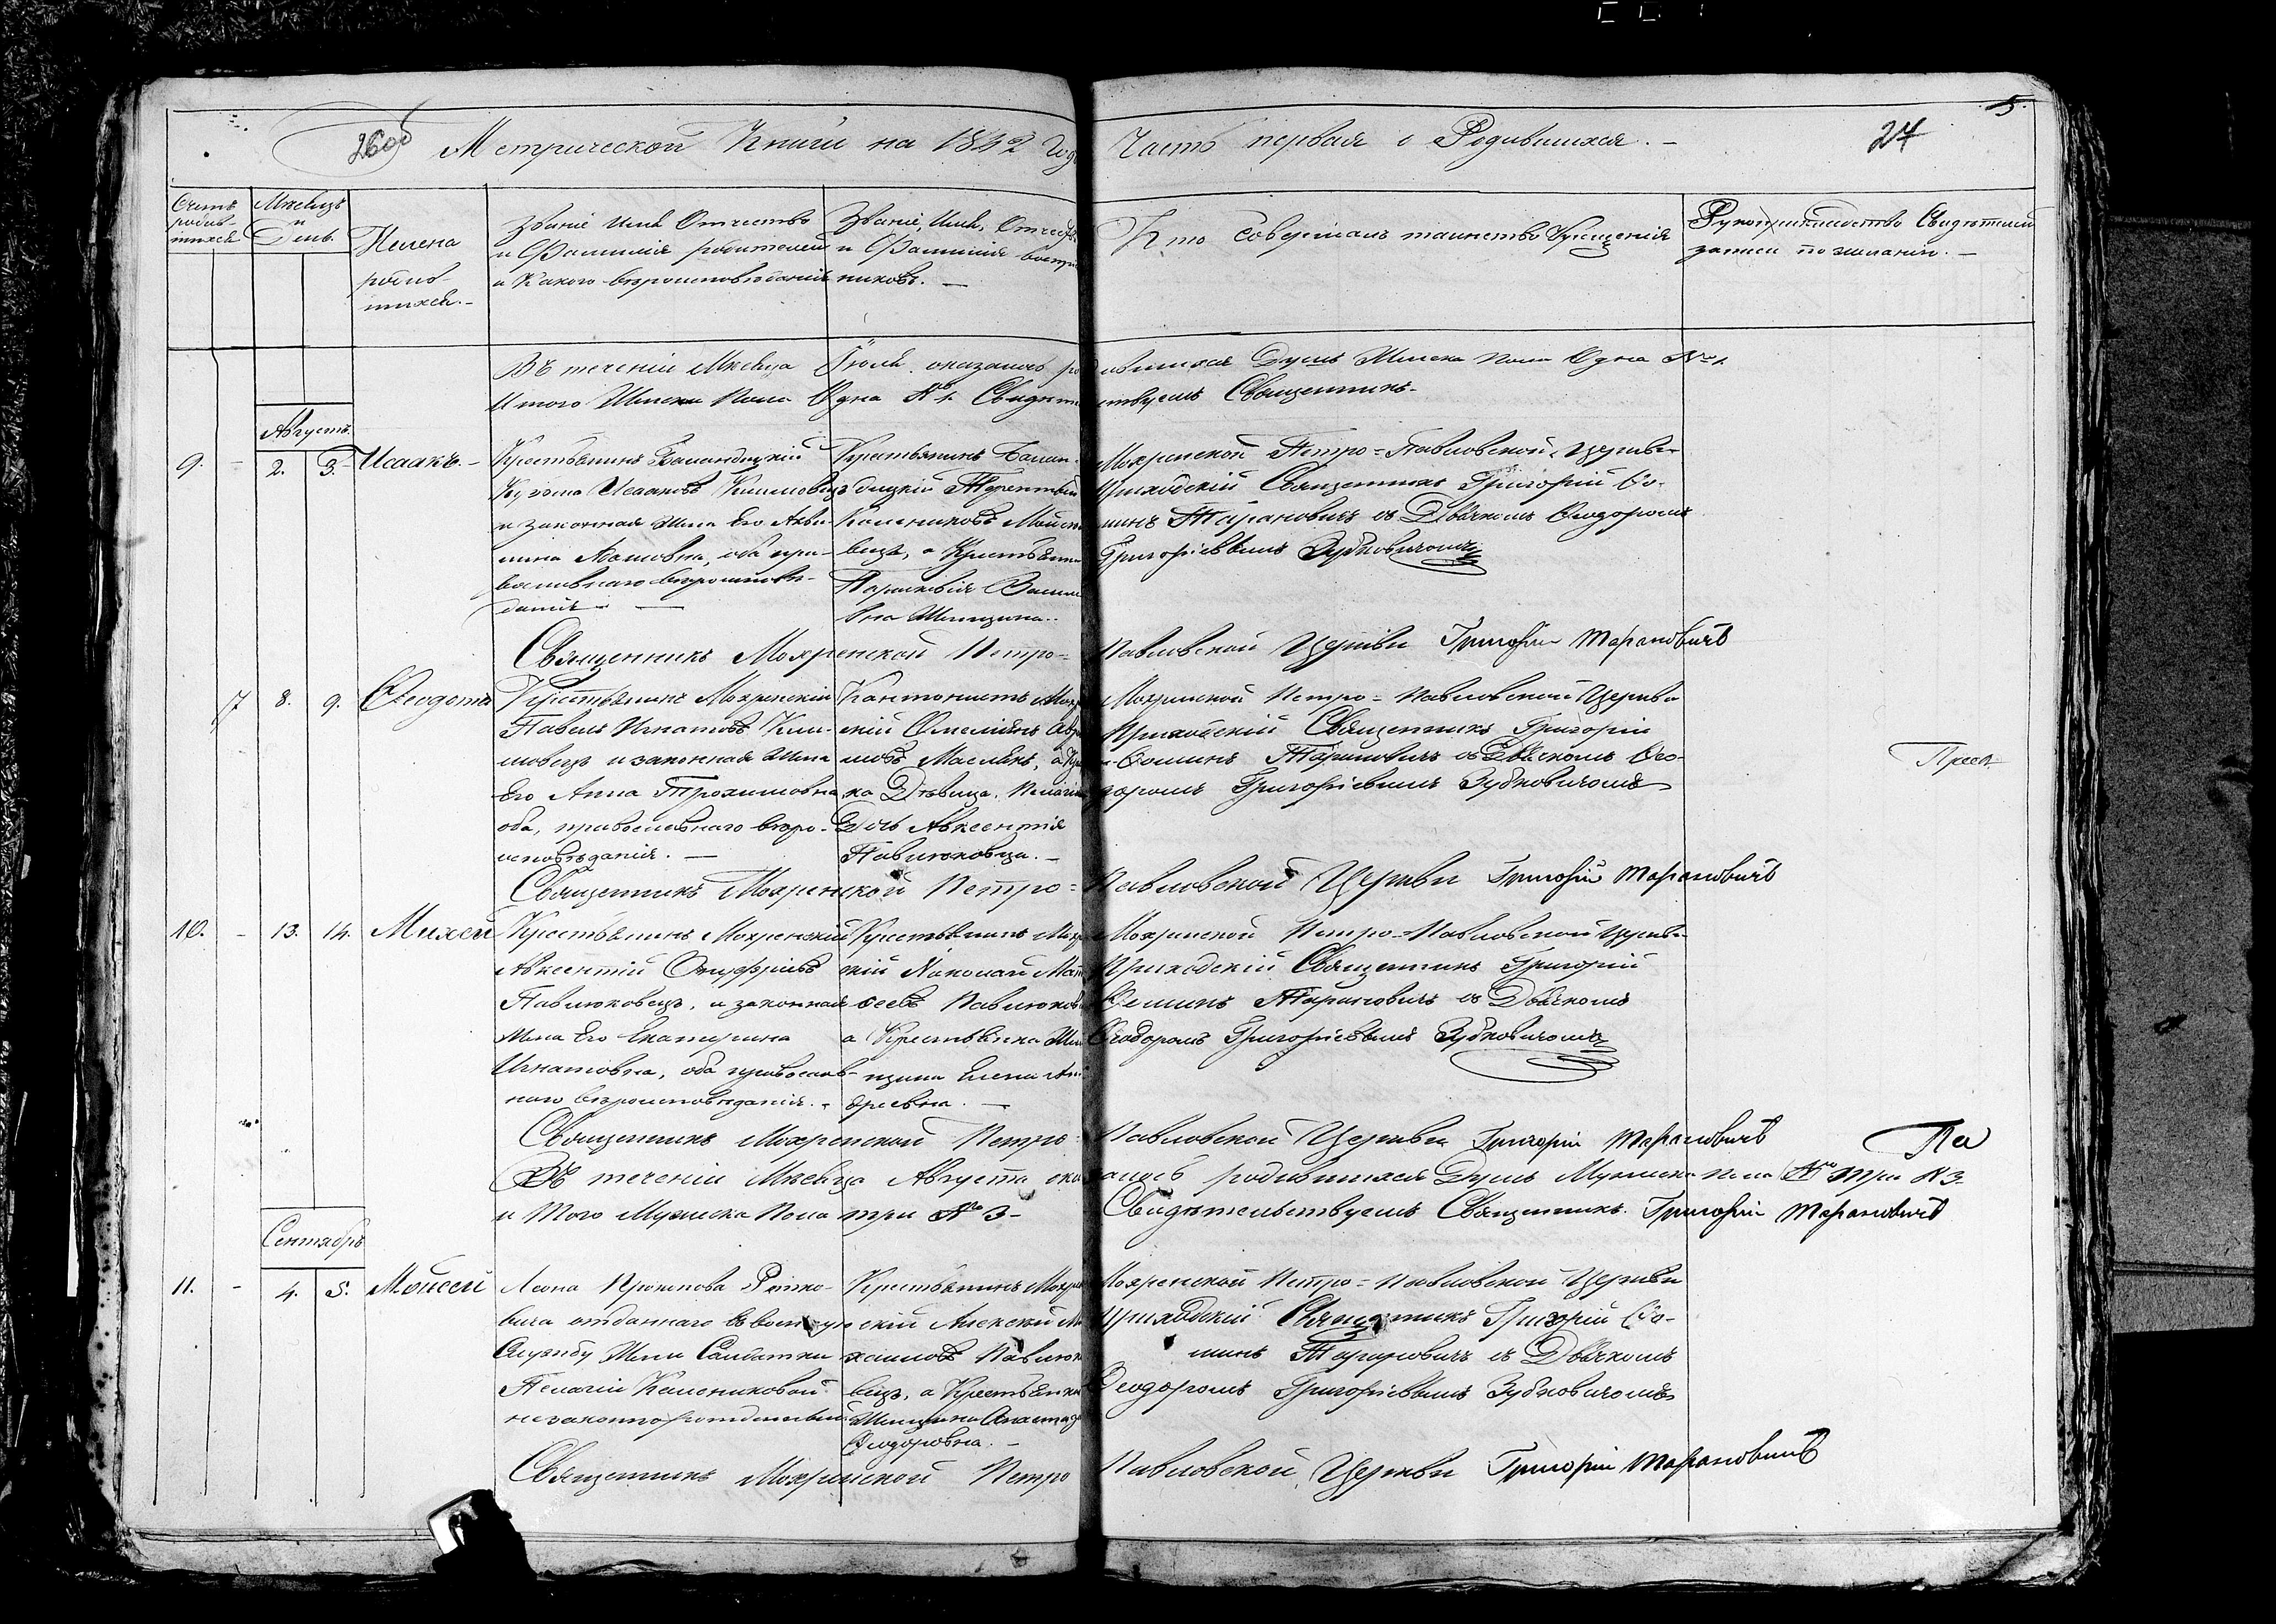 26об Метрической Книги на 1842 Года Часть первая о Родившихся. 27 5.
Счетъ родив-шихся
Мѣсяцъ и День.
Имена родив-шихся.
Званіе Имя Отчество
и Фамилія родителей
и Какого вѣроисповѣданія
Званіе, Имя, Отчест
и Фамилія воспрі
никовъ.
Кто совершалъ таинство Крещенія
Рукоприкладство Свидѣтелей
записи по желанію.
Въ теченіи Мѣсяца Іюля оказалось родившихся Душъ Женска Пола Одна №1.
Итого Женска Пола Одна №1. Свидѣтельствуемъ Священникъ.
Августъ.
9. - 2. 3. Исаакъ.
Крестьянинъ
Исааковъ Климовецъ
и законная Жена Его Аки-
лина, оба пра-
вославнаго вѣроисповѣ-
данія
Крестьянинъ
Терентій
Колениковъ
вецъ, а Крестьянка
Параскевія Васили
вна Женщина.
Мохренской Петро=Павловской Церкви
Приходскій Священникъ Григорій Ѳо-
минъ Тарановичъ съ Дьячкомъ Ѳеодоромъ
Григоріевымъ Зубковичомъ
Священникъ Мохренской Петро=Павловской Церкви Григорій Тарановичъ
7 8. 9. Ѳеодота
Крестьянинъ Мохренскій
Павелъ Игнатовъ Кли-
мовецъ и законная Жена
Его Анна Трохимовна
оба, православнаго вѣро-
исповѣданія.
Кантонистъ Мохр
скій Омельянъ
мовъ, а Кр
ка Дѣвица, Пелагія
Дочь Авксентія
Павлюковца.
Мохренской Петро=Павловской Церкви
Приходскій Священникъ Григорій
Ѳоминъ Тарановичъ съ Дьячкомъ Ѳео-
доромъ Григоріевымъ Зубковичомъ
Священникъ Мохренской Петро=Павловской Церкви Григорій Тарановичъ
10. - 13. 14. Михей
Крестьянинъ Мохренскій
Авксентій Онуфріевъ
Павлюковецъ, и законная
Жена Его Екатерина
Игнатовна, оба православ-
наго вѣроисповѣданія.
Крестьянинъ Мохр
скій Николай Мат
ѳеевъ Павлюков
а Крестьянка Жен
щина Елена Ан
дреевна.
Мохренской Петро=Павловской Церкви
Приходскій Священникъ Григорій
Ѳоминъ Тарановичъ съ Дьячкомъ
Ѳеодоромъ Григоріевымъ Зубковичомъ
Священникъ Мохренской Петро=Павловской Церкви Григорій Тарановичъ
Въ теченіи Мѣсяца Августа оказалось родившихся Душъ Мужеска пола три №3
и Того Мужеска Пола три №3 Свидѣтельствуемъ Священникъ Григорій Тарановичъ
Сентябрь
11. - 4. 5. Мойсей
Леона Прокопова
вича отданнаго въ воен
Службу Жены Салдатки
Пелагіи Колениковой
незаконнорожденный
Крестьянинъ Мохр
скій Алексѣй Ми
хаиловъ Павлюко
вецъ, а Крестьянка
Женщина
Ѳеодоровна.
Мохренской Петро=Павловской Церкви
Приходскій Священникъ Григорій Ѳо-
минъ Тарановичъ съ Дьячкомъ
Ѳеодоромъ Григоріевымъ Зубковичомъ
Священникъ Мохренской Петро Павловской Церкви Григорій Тарановичъ